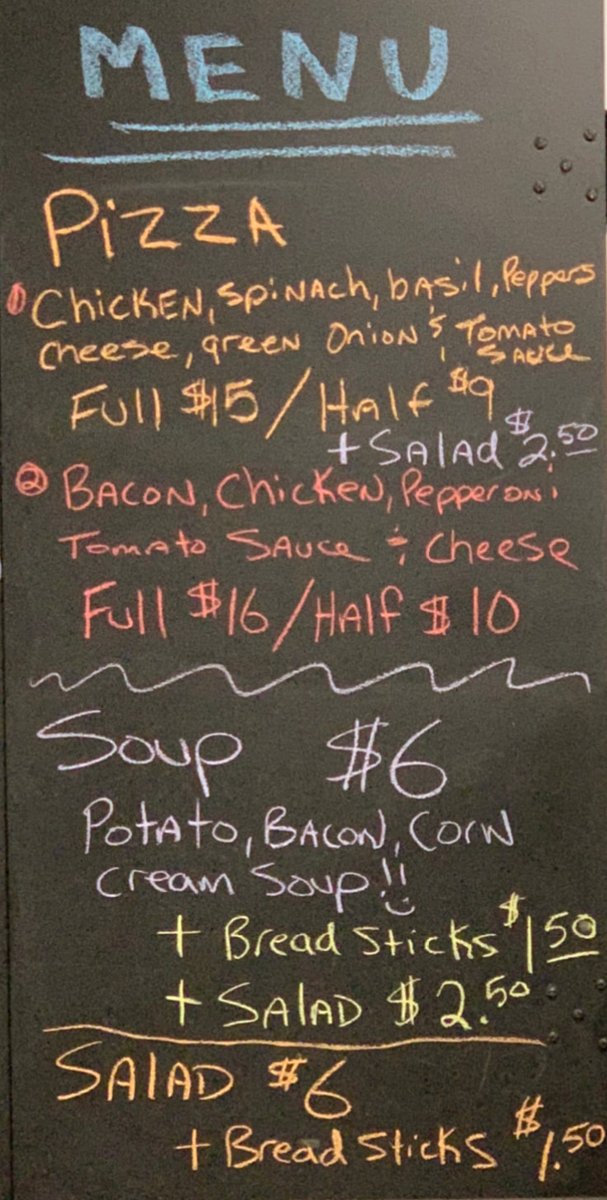 MENU
PizzA
① ChicKEN, SpiNAch, bASil, Peppers
cheese, green Onion & Tomato
SAUce
Full $15 / HAlf $9
+ SAlAd $2.50
② BACON, ChicKen, Pepperoni
Tomato SAuce & Cheese
Full $16 / HAlf $10
Soup $6
PotAto, BACON, Corn
cream Soup!!
+ Bread Sticks $1 50
+ SAlAD $2.50
SAlAD $6
+ Bread Sticks $1.50